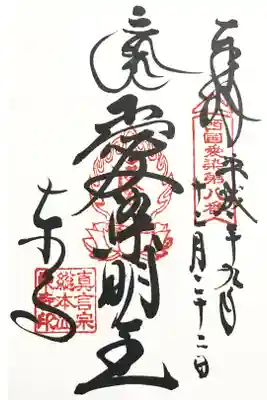 奉拝
西國愛染第八番
平成二十九年
月二十二日
愛染明王
東寺
真言宗
總本山
東寺印